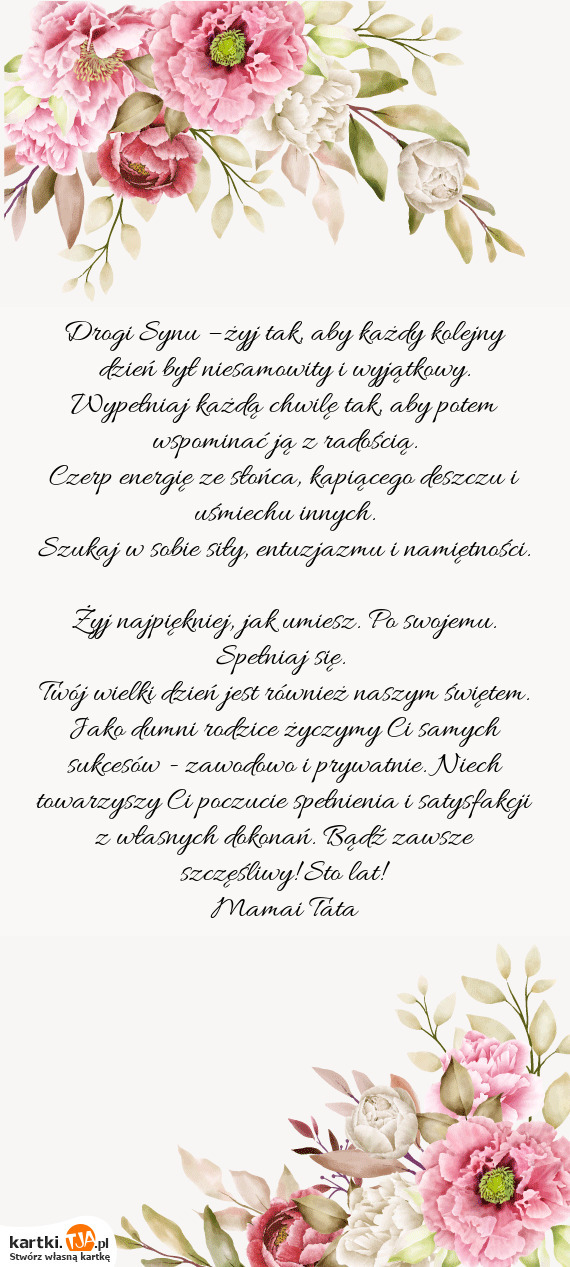 Drogi Synu – żyj tak, aby każdy kolejny
dzień był niesamowity i wyjątkowy.
Wypełniaj każdą chwilę tak, aby potem
wspominać ją z radością.
Czerp energię ze słońca, kapiącego deszczu i
uśmiechu innych.
Szukaj w sobie siły, entuzjazmu i namiętności.
Żyj najpiękniej, jak umiesz. Po swojemu.
Spełniaj się.
Twój wielki dzień jest również naszym świętem.
Jako dumni rodzice życzymy Ci samych
sukcesów - zawodowo i prywatnie. Niech
towarzyszy Ci poczucie spełnienia i satysfakcji
z własnych dokonań. Bądź zawsze
szczęśliwy! Sto lat!
Mamai Tata
kartki.TJA.pl
Stwórz własną kartkę